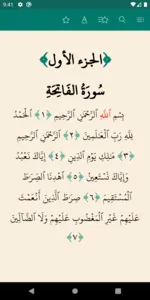 9:41
﴿الجزء الأول﴾
سُورَةُ الفَاتِحَةِ
بِسْمِ اللَّهِ الرَّحْمَنِ الرَّحِيمِ ﴿١﴾ الْحَمْدُ
لِلَّهِ رَبِّ الْعَالَمِينَ ﴿٢﴾ الرَّحْمَنِ الرَّحِيمِ
﴿٣﴾ مَالِكِ يَوْمِ الدِّينِ ﴿٤﴾ إِيَّاكَ نَعْبُدُ
وَإِيَّاكَ نَسْتَعِينُ ﴿٥﴾ اهْدِنَا الصِّرَاطَ
الْمُسْتَقِيمَ ﴿٦﴾ صِرَاطَ الَّذِينَ أَنْعَمْتَ
عَلَيْهِمْ غَيْرِ الْمَغْضُوبِ عَلَيْهِمْ وَلَا الضَّالِّينَ
﴿٧﴾